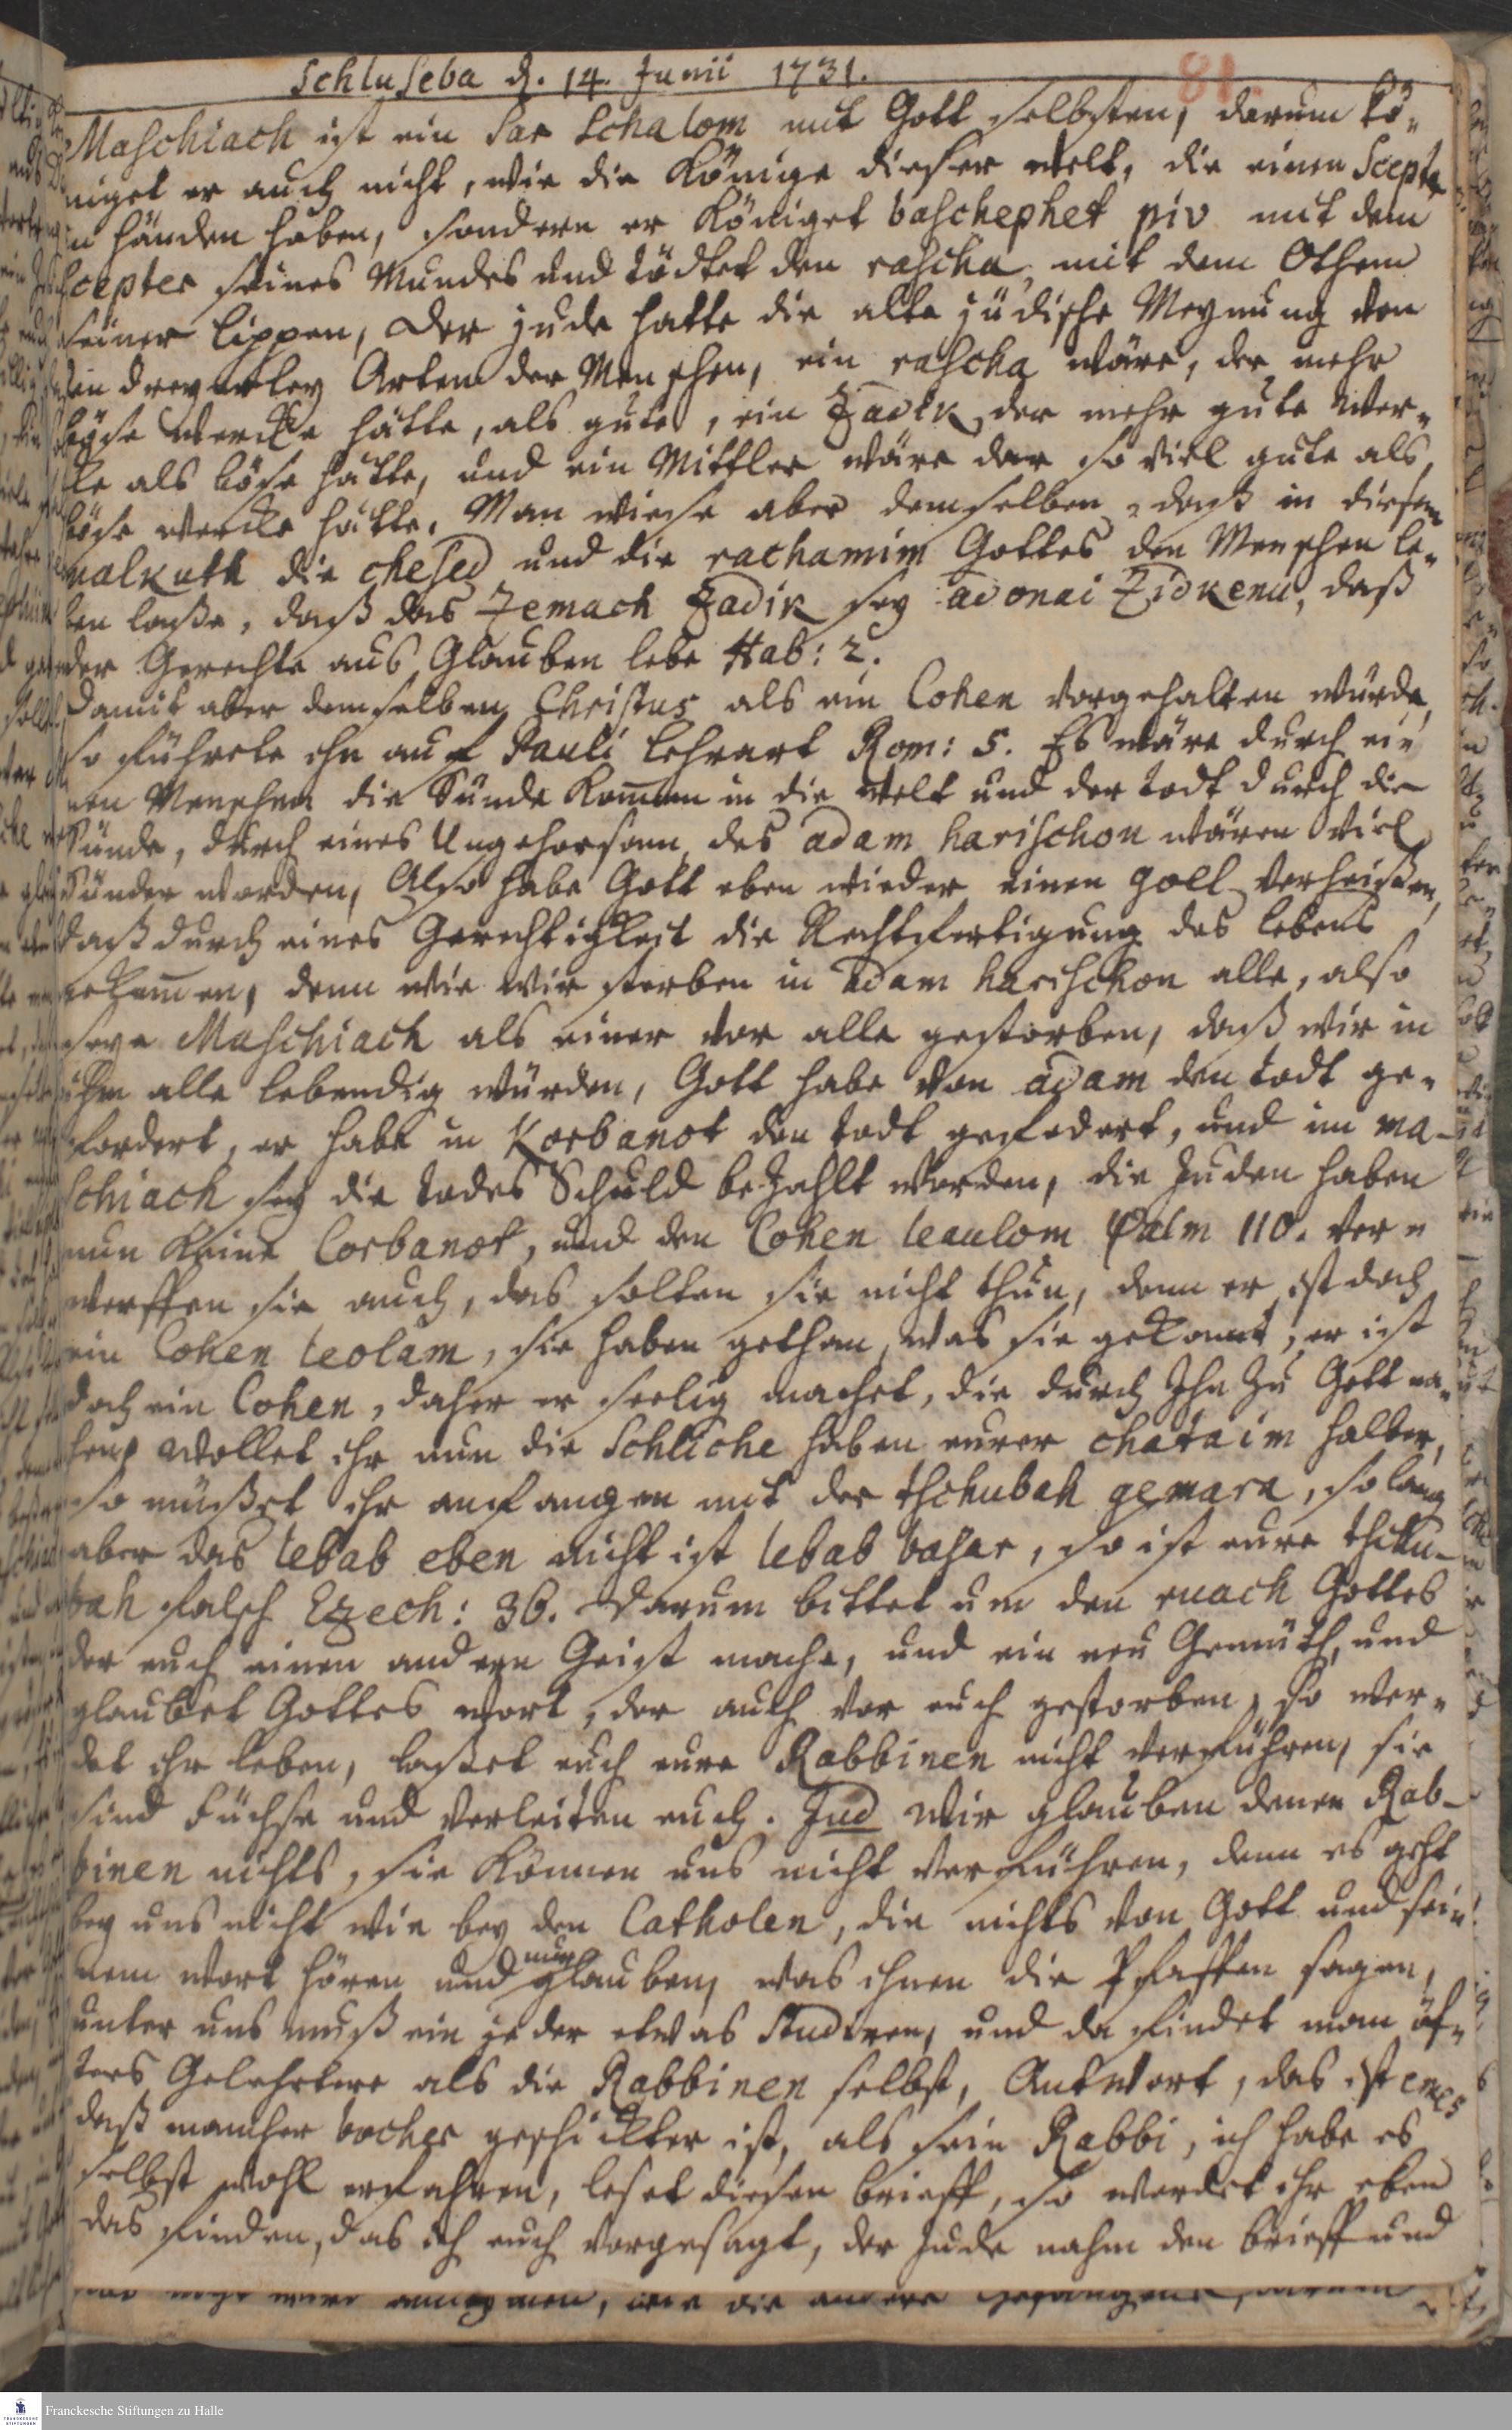 Schluseba d. 14. Junii 1731.
81.
Maschiach ist ein Sar Schalom mit Gott selbsten, darum kö-
niget er auch nicht, wie die Könige dieser welt, die einen Scepter
in händen haben, sondern er Königet baschephet piv mit dem
Scepter seines Mundes und tödtet den rascha mit dem Othem
seiner lippen, der jude hatte die alte jüdische Meynung von
den dreyerley Arten der Menschen, ein rascha wäre, der mehr
böse wercke hätte, als gute, ein Zadik der mehr gute Wer-
cke als böse hätte, und ein Mittler wäre der so viel gute als
böse wercke hätte. Man wiese aber demselben, daß in diesem
malkuth die chesed und die rachamim Gottes den Menschen le-
ben laße, daß das Zemach Zadik sey adonai Zidkenu, daß
der Gerechte aus Glauben lebe Hab: 2.
Damit aber demselben Christus als ein Cohen vorgehalten würde,
so führete ihn auf Pauli lehrart Rom: 5. Es wäre durch ei-
nen Menschen die Sünde kommen in die welt und der todt durch die
Sünde, durch eines Ungehorsam des adam harischon wären viel
Sünder worden, Also habe Gott eben wieder einen goel verheißen,
daß durch eines Gerechtigkeit die Rechtfertigung des lebens
gekommen, denn wie wir sterben in adam harischon alle, also
seye Maschiach als einer vor alle gestorben, daß wir in
ihm alle lebendig würden, Gott habe von adam den todt ge-
fordert, er habe in Korbanot den todt gefodert, und im ma-
schiach sey die todes Schuld bezahlt worden, die Juden haben
nun keine Corbanot, und den Cohen leaulom Psalm 110. ver-
werffen sie auch, das solten sie nicht thun, denn er ist doch
ein Cohen leolam, sie haben gethan, was sie gekonnt, er ist
doch ein Cohen, daher er seelig machet, die durch Ihn zu Gott na-
hen, wollet ihr nun die Schliche haben eurer chataim halber,
so müßet ihr anfangen mit der thschubah gemara, so lang
aber das lebab eben nicht ist lebab basar, so ist eure thschu-
bah falsch Ezech: 36. Darum bittet um den ruach Gottes
der euch einen andern Geist mache, und ein neu Gemüth, und
glaubet Gottes wort, der auch vor euch gestorben, so wer-
det ihr leben, laßet euch eure Rabbinen nicht verführen, sie
sind Füchse und verleiten euch. Jud wir glauben denen Rab-
binen nichts, sie können uns nicht verführen, denn es geht
bey uns nicht wie bey den Catholen, die nichts von Gott und sei-
nem wort hören und nur glauben, was ihnen die Pfaffen sagen,
unter uns muß ein jeder etwas studiren, und da findet man öf-
ters Gelehrtere als die Rabbinen selbst, Antwort, das ist emes
daß mancher bocher geschickter ist, als sein Rabbi, ich habe es
selbst wohl erfahren, leset diesen brieff, so werdet ihr eben
das finden, das ich euch vorgesagt, der Jude nahm den brieff und
Franckesche Stiftungen zu Halle